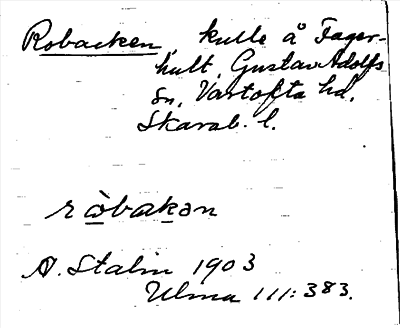 Robacken, kulle å Fager-
hult, Gustav Adolfs
sn, Vartofta hd,
Skarab. l.
ròbakən
A. Stalin 1903
Ulma 111:383.